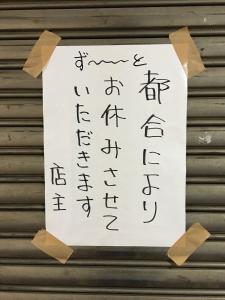 都合により
ず〜〜と
お休みさせて
いただきます
店主